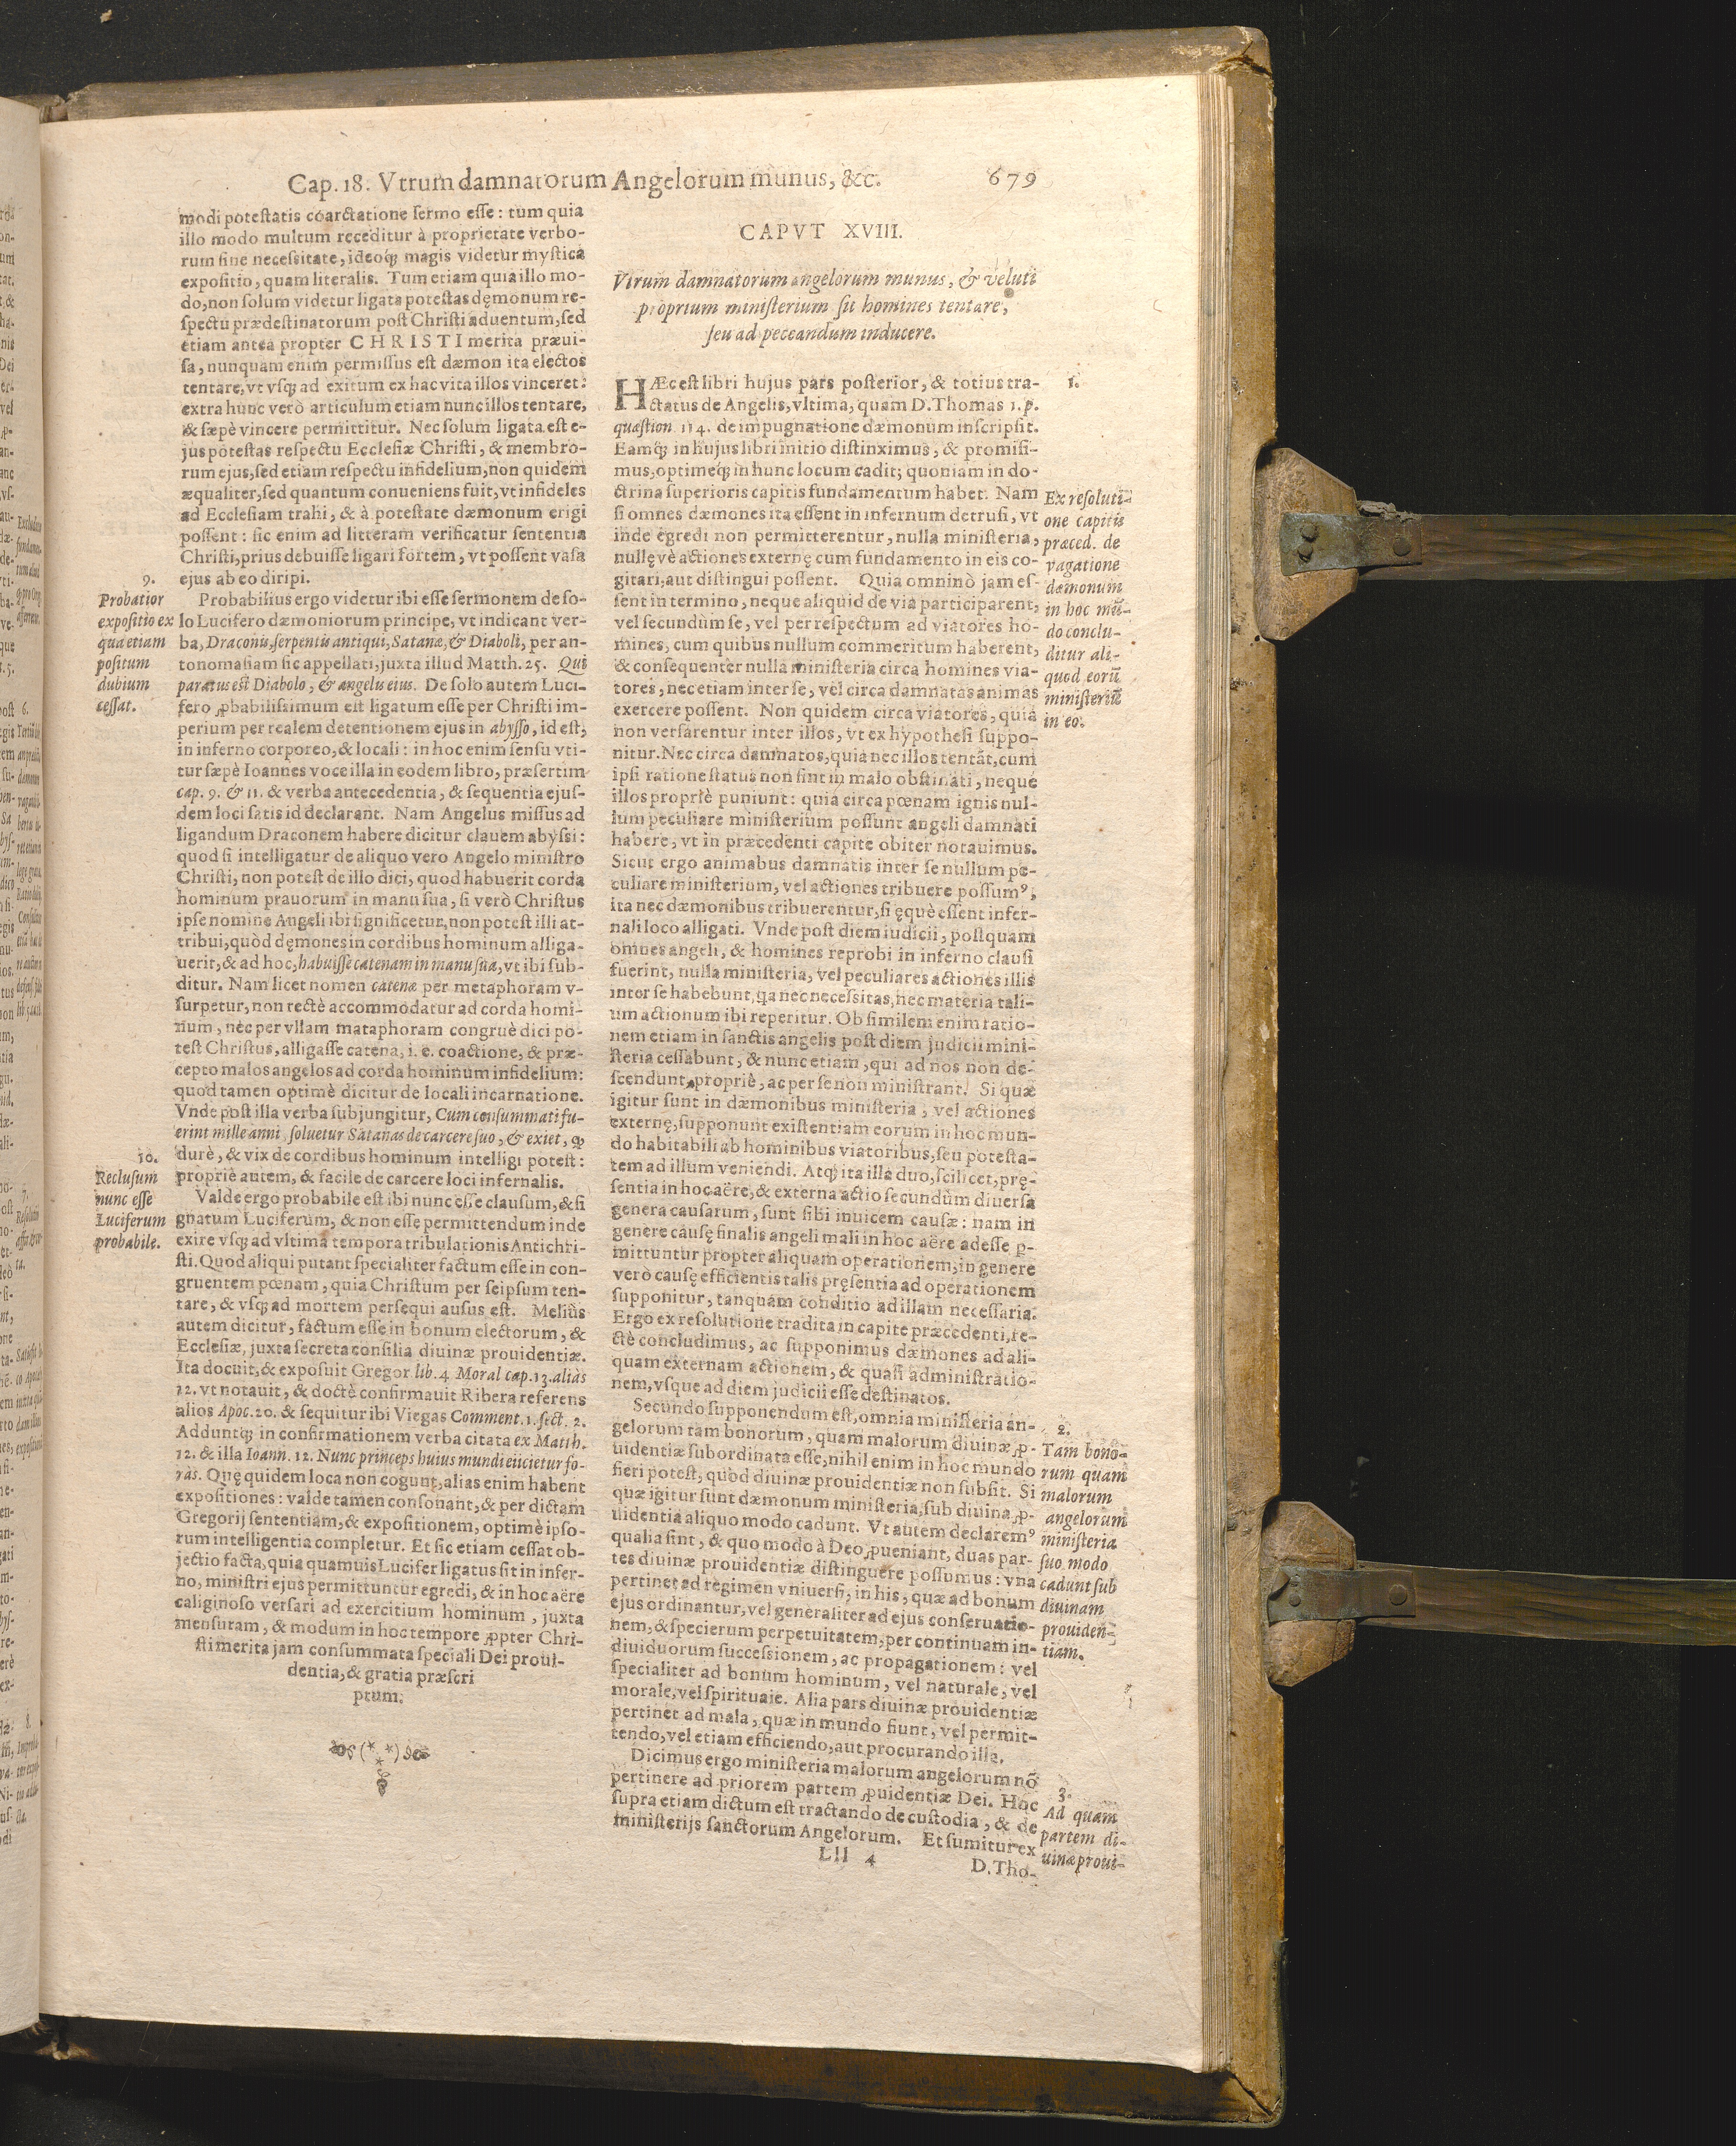 Cap. 18. Vtrum damnatorum Angelorum munus, &c. 679
modi potestatis coarctatione sermo esse: tum quia
illo modo multum receditur à proprietate verbo-
rum sine necessitate, ideoq; magis videtur mystica
expositio, quam literalis. Tum etiam quia illo mo-
do, non solum videtur ligata potestas dęmonum re-
spectu prædestinatorum post Christi aduentum, sed
etiam antea propter CHRISTI merita præui-
sa, nunquam enim permissus est dæmon ita electos
tentare, vt vsq; ad exitum ex hac vita illos vinceret:
extra hunc verò articulum etiam nunc illos tentare,
& sæpè vincere permittitur. Nec solum ligata est e-
jus potestas respectu Ecclesiæ Christi, & membro-
rum ejus, sed etiam respectu infidelium, non quidem
æqualiter, sed quantum conueniens fuit, vt infideles
ad Ecclesiam trahi, & à potestate dæmonum erigi
possent: sic enim ad litteram verificatur sententia
Christi, prius debuisse ligari fortem, vt possent vasa
ejus ab eo diripi.
9.
Probatior
expositio ex
qua etiam
positum
dubium
cessat.
Probabilius ergo videtur ibi esse sermonem de so-
lo Lucifero dæmoniorum principe, vt indicant ver-
ba, Draconis, serpentis antiqui, Satanæ, & Diaboli, per an-
tonomasiam sic appellati, juxta illud Matth. 25. Qui
paratus est Diabolo, & angelis eius. De solo autem Luci-
fero ꝓbabilissimum est ligatum esse per Christi im-
perium per realem detentionem ejus in abysso, id est,
in inferno corporeo, & locali: in hoc enim sensu vti-
tur sæpè Ioannes voce illa in eodem libro, præsertim
cap. 9. & 11. & verba antecedentia, & sequentia ejus-
dem loci satis id declarant. Nam Angelus missus ad
ligandum Draconem habere dicitur clauem abyssi:
quod si intelligatur de aliquo vero Angelo ministro
Christi, non potest de illo dici, quod habuerit corda
hominum prauorum in manu sua, si verò Christus
ipse nomine Angeli ibi significetur, non potest illi at-
tribui, quòd dęmones in cordibus hominum alliga-
uerit, & ad hoc, habuisse catenam in manu sua, vt ibi sub-
ditur. Nam licet nomen catenæ per metaphoram v-
surpetur, non rectè accommodatur ad corda homi-
num, nec per vllam mataphoram congruè dici po-
test Christus, alligasse catena, i. e. coactione, & præ-
cepto malos angelos ad corda hominum infidelium:
quod tamen optimè dicitur de locali incarnatione.
Vnde post illa verba subjungitur, Cum consummati fu-
erint mille anni, soluetur Satanas de carcere suo, & exiet, qđ
durè, & vix de cordibus hominum intelligi potest:
propriè autem, & facile de carcere loci infernalis.
10.
Reclusum
nunc esse
Luciferum
probabile.
Valde ergo probabile est ibi nunc esse clausum, & si
gnatum Luciferum, & non esse permittendum inde
exire vsq; ad vltima tempora tribulationis Antichri-
sti. Quod aliqui putant specialiter factum esse in con-
gruentem pœnam, quia Christum per seipsum ten-
tare, & vsq; ad mortem persequi ausus est. Meliùs
autem dicitur, factum esse in bonum electorum, &
Ecclesiæ, juxta secreta consilia diuinæ prouidentiæ.
Ita docuit, & exposuit Gregor. lib. 4 Moral cap. 13. aliàs
12. vt notauit, & doctè confirmauit Ribera referens
alios Apoc. 20. & sequitur ibi Viegas Comment. 1. sect. 2.
Adduntq; in confirmationem verba citata ex Matth.
12. & illa Ioann. 12. Nunc princeps huius mundi eiicietur fo-
ràs. Quę quidem loca non cogunt, alias enim habent
expositiones: valde tamen consonant, & per dictam
Gregorij sententiam, & expositionem, optimè ipso-
rum intelligentia completur. Et sic etiam cessat ob-
jectio facta, quia quamuis Lucifer ligatus sit in infer-
no, ministri ejus permittuntur egredi, & in hoc aëre
caliginoso versari ad exercitium hominum, juxta
mensuram, & modum in hoc tempore ꝓpter Chri-
sti merita jam consummata speciali Dei proui-
dentia, & gratia præscri
ptum.
CAPVT XVIII.
Vtrum damnatorum angelorum munus, & veluti
proprium ministerium sit homines tentare,
seu ad peccandum inducere.
1.
HÆc est libri hujus pars posterior, & totius tra-
ctatus de Angelis, vltima, quam D. Thomas 1. p.
quæstion. 114. de impugnatione dæmonum inscripsit.
Eamq; in hujus libri initio distinximus, & promisi-
mus, optimeq; in hunc locum cadit; quoniam in do-
ctrina superioris capitis fundamentum habet. Nam
si omnes dæmones ita essent in infernum detrusi, vt
inde egredi non permitterentur, nulla ministeria,
nullęvè actiones externę cum fundamento in eis co-
gitari, aut distingui possent. Quia omninò jam es-
sent in termino, neque aliquid de via participarent,
vel secundùm se, vel per respectum ad viatores ho-
mines, cum quibus nullum commeritum haberent,
& consequenter nulla ministeria circa homines via-
tores, nec etiam inter se, vel circa damnatas animas
exercere possent. Non quidem circa viatores, quia
non versarentur inter illos, vt ex hypothesi suppo-
nitur. Nec circa damnatos, quia nec illos tentāt, cum
ipsi ratione status non sint in malo obstinati, neque
illos propriè puniunt: quia circa pœnam ignis nul-
lum peculiare ministerium possunt angeli damnati
habere, vt in præcedenti capite obiter notauimus.
Sicut ergo animabus damnatis inter se nullum pe-
culiare ministerium, vel actiones tribuere possumꝰ,
ita nec dæmonibus tribuerentur, si ęquè essent infer-
nali loco alligati. Vnde post diem iudicii, postquam
omnes angeli, & homines reprobi in inferno clausi
fuerint, nulla ministeria, vel peculiares actiones illis
inter se habebunt, qa nec necessitas, nec materia tali-
um actionum ibi reperitur. Ob similem enim ratio-
nem etiam in sanctis angelis post diem judicii mini-
steria cessabunt, & nunc etiam, qui ad nos non de-
scendunt propriè, ac per se non ministrant. Si quæ
igitur sunt in dæmonibus ministeria, vel actiones
externę, supponunt existentiam eorum in hoc mun-
do habitabili ab hominibus viatoribus, seu potesta-
tem ad illum veniendi. Atq; ita illa duo, scilicet, prę-
sentia in hoc aëre, & externa actio secundùm diuersa
genera causarum, sunt sibi inuicem causæ: nam in
genere causę finalis angeli mali in hoc aëre adesse ꝑ-
mittuntur propter aliquam operationem, in genere
verò causę efficientis talis pręsentia ad operationem
supponitur, tanquam conditio ad illam necessaria.
Ergo ex resolutione tradita in capite præcedenti, re-
ctè concludimus, ac supponimus dæmones ad ali-
quam externam actionem, & quasi administratio-
nem, vsque ad diem judicii esse destinatos.
Ex resoluti-
one capitis
præced. de
vagatione
dæmonum
in hoc mū-
do conclu-
ditur ali-
quod eorū
ministeriū
in eo.
Secundo supponendum est, omnia ministeria an-
gelorum tam bonorum, quam malorum diuinæ ꝓ-
uidentiæ subordinata esse, nihil enim in hoc mundo
fieri potest, quòd diuinæ prouidentiæ non subsit. Si
quæ igitur sunt dæmonum ministeria, sub diuina ꝓ-
uidentia aliquo modo cadunt. Vt autem declaremꝰ
qualia sint, & quo modo à Deo ꝓueniant, duas par-
tes diuinæ prouidentiæ distinguere possumus: vna
pertinet ad regimen vniuersi, in his, quæ ad bonum
ejus ordinantur, vel generaliter ad ejus conseruatio-
nem, & specierum perpetuitatem, per continuam in-
diuiduorum successionem, ac propagationem: vel
specialiter ad bonum hominum, vel naturale, vel
morale, vel spirituale. Alia pars diuinæ prouidentiæ
pertinet ad mala, quæ in mundo fiunt, vel permit-
tendo, vel etiam efficiendo, aut procurando illa.
2.
Tam bono-
rum quam
malorum
angelorum
ministeria
suo modo
cadunt sub
diuinam
prouiden-
tiam.
Dicimus ergo ministeria malorum angelorum nō
pertinere ad priorem partem ꝓuidentiæ Dei. Hoc
supra etiam dictum est tractando de custodia, & de
ministerijs sanctorum Angelorum. Et sumitur ex
3.
Ad quam
partem di-
uinæ proui-
Lll 4
D. Tho-